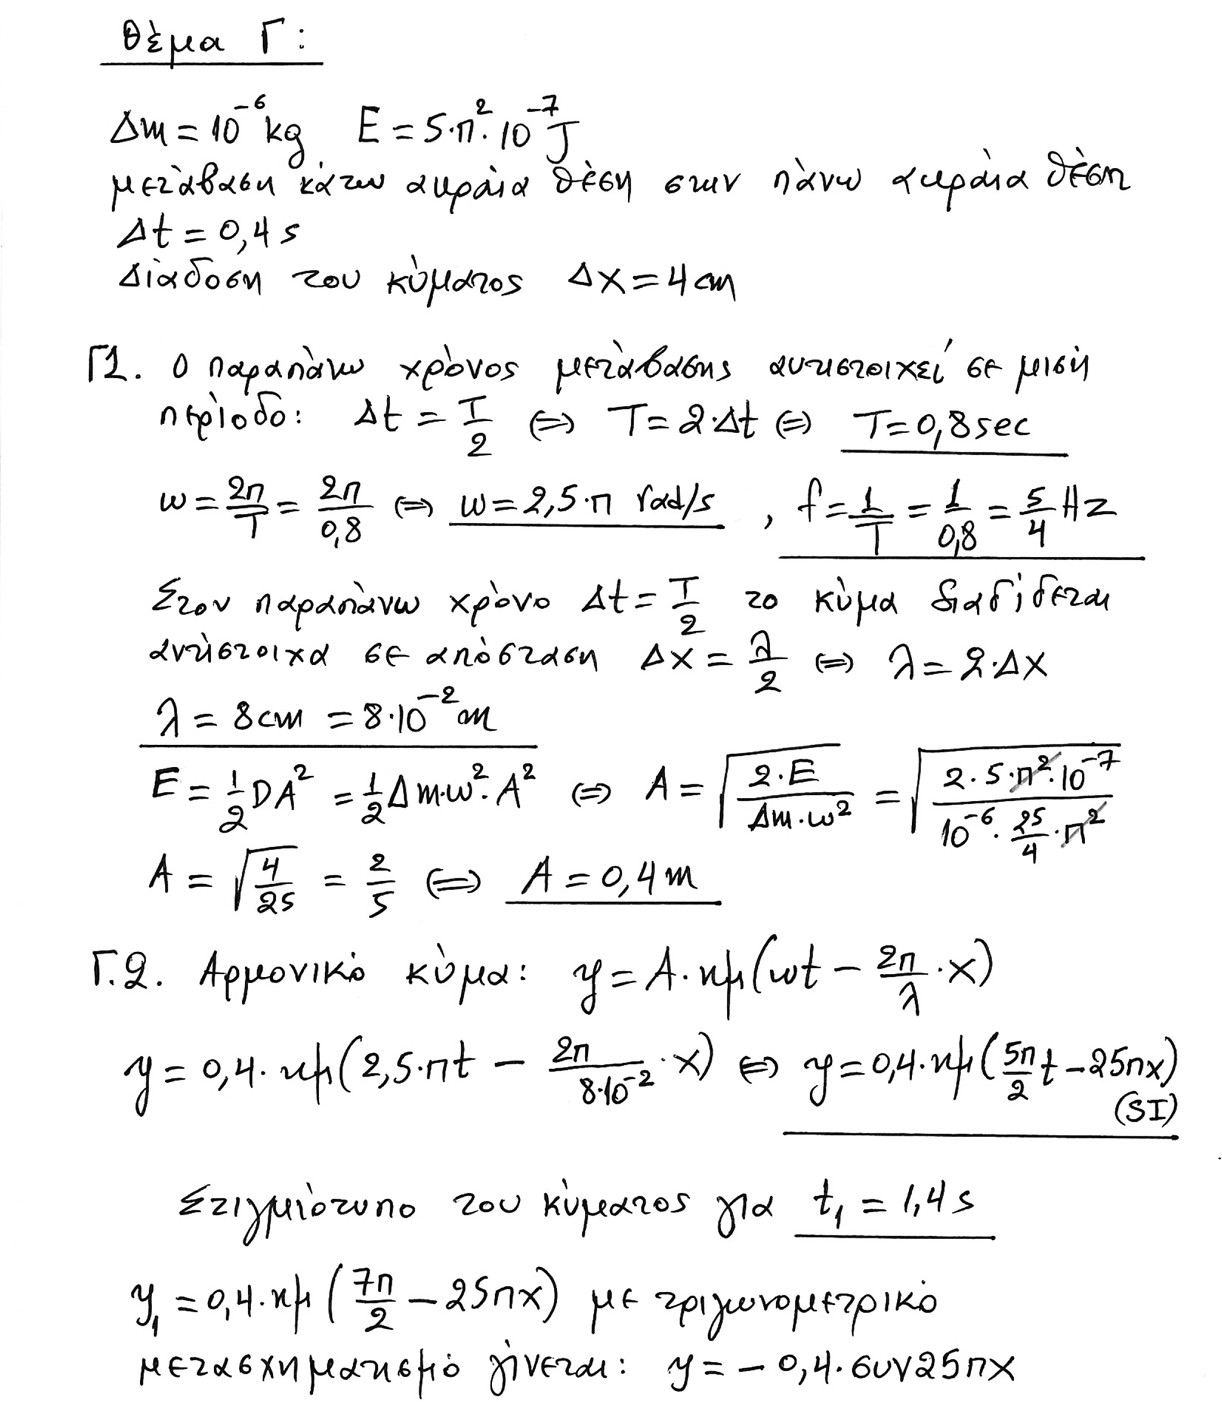 Θέμα Γ:
Δm = 10⁻⁶ kg   E = 5·π²·10⁻⁷ J
μετάβαση κάτω ακραία θέση στην πάνω ακραία θέση
Δt = 0,4 s
Διάδοση του κύματος Δx = 4 cm
Γ1. Ο παραπάνω χρόνος μετάβασης αντιστοιχεί σε μισή
περίοδο: Δt = T/2 ⇔ T = 2·Δt ⇔ T = 0,8 sec
ω = 2π/T = 2π/0,8 ⇔ ω = 2,5·π rad/s , f = 1/T = 1/0,8 = 5/4 Hz
Στον παραπάνω χρόνο Δt = T/2 το κύμα διαδίδεται
αντίστοιχα σε απόσταση Δx = λ/2 ⇔ λ = 2·Δx
λ = 8 cm = 8·10⁻² m
E = 1/2 DA² = 1/2 Δm·ω²·A² ⇔ A = √(2·E/(Δm·ω²)) = √(2·5·π²·10⁻⁷/(10⁻⁶·25/4·π²))
A = √(4/25) = 2/5 ⇔ A = 0,4 m
Γ.2. Αρμονικό κύμα: y = A·ημ(ωt − 2π/λ·x)
y = 0,4·ημ(2,5·πt − 2π/(8·10⁻²)·x) ⇔ y = 0,4·ημ(5π/2 t − 25πx)
(SI)
Στιγμιότυπο του κύματος για t₁ = 1,4 s
y₁ = 0,4·ημ(7π/2 − 25πx) με τριγωνομετρικό
μετασχηματισμό γίνεται: y = − 0,4·συν25πx